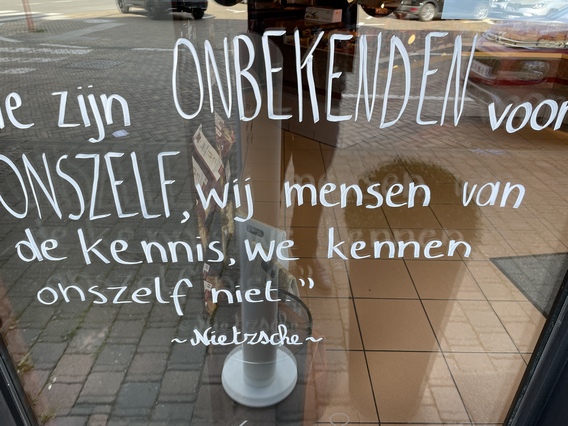 e zijn ONBEKENDEN voor
ONSZELF, wij mensen van
de kennis, we kennen
onszelf niet."
~Nietzsche~